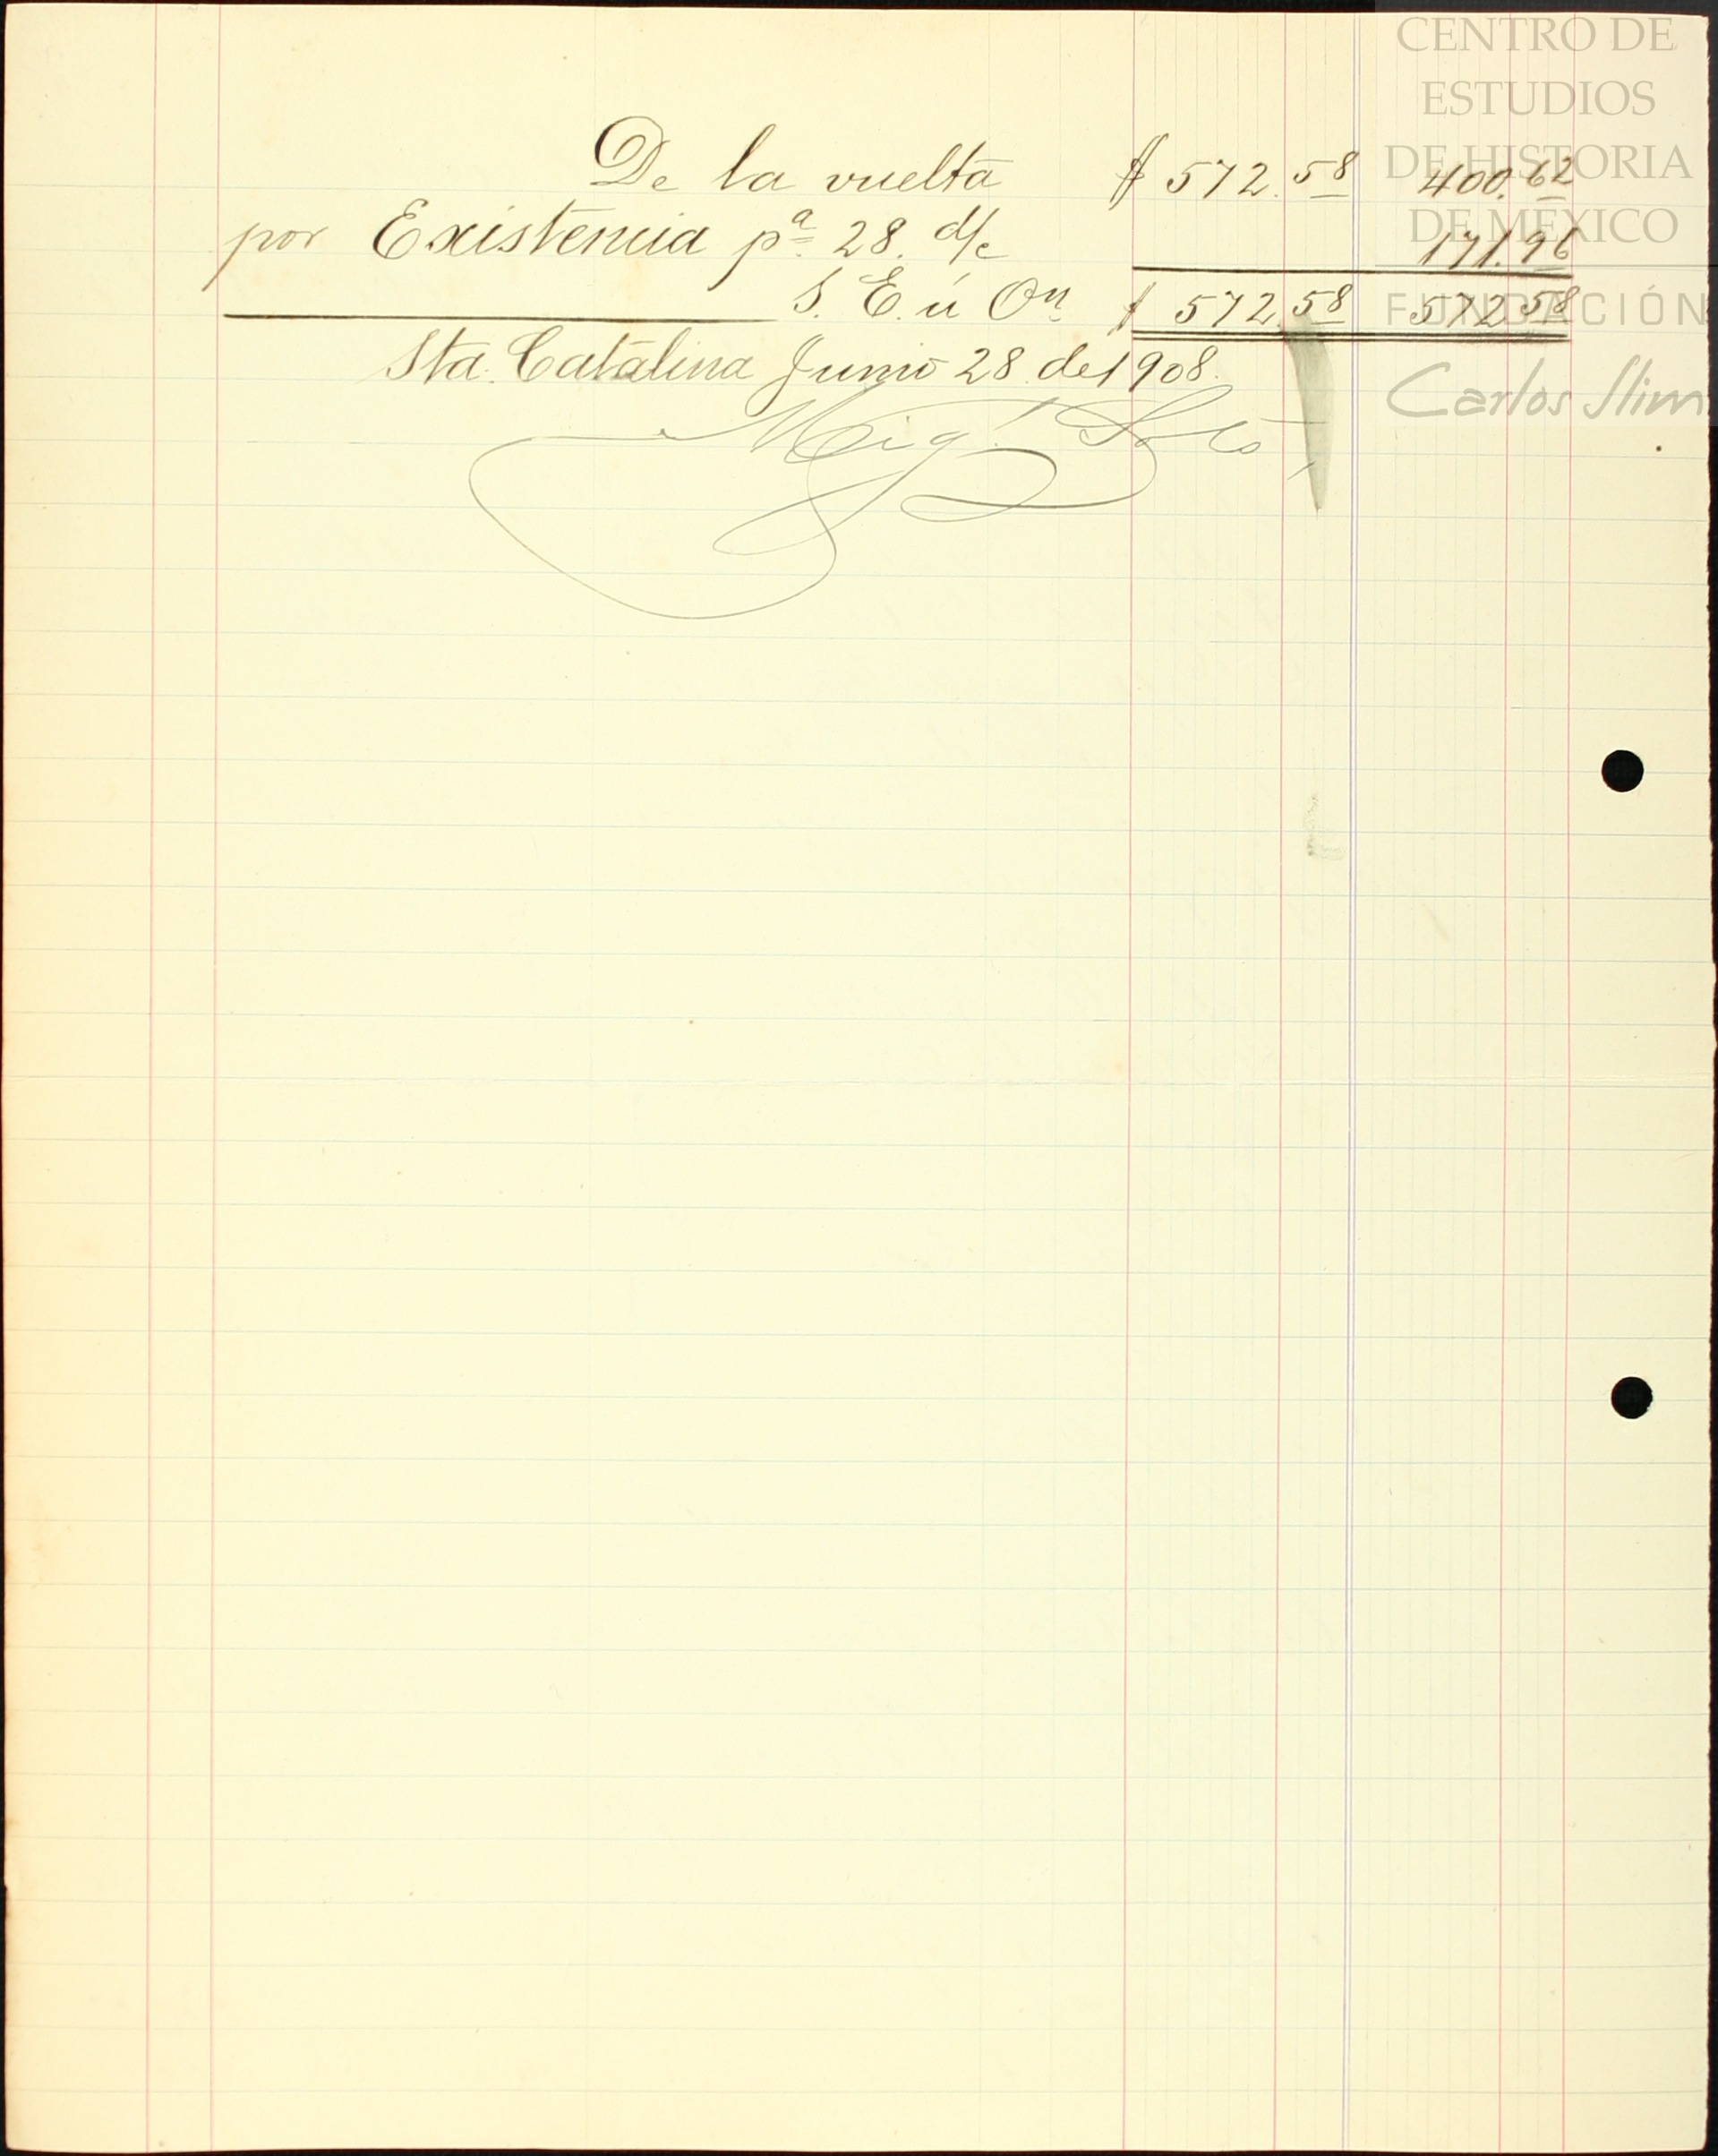 De la vuelta $ 572.58 400.62
por Existencia pª 28. d/c 171.96
S. E. ú On $ 572.58 572.58
Sta. Catalina Junio 28 de 1908.
Migl. Soto
CENTRO DE
ESTUDIOS
DE HISTORIA
DE MÉXICO
FUNDACIÓN
Carlos Slim